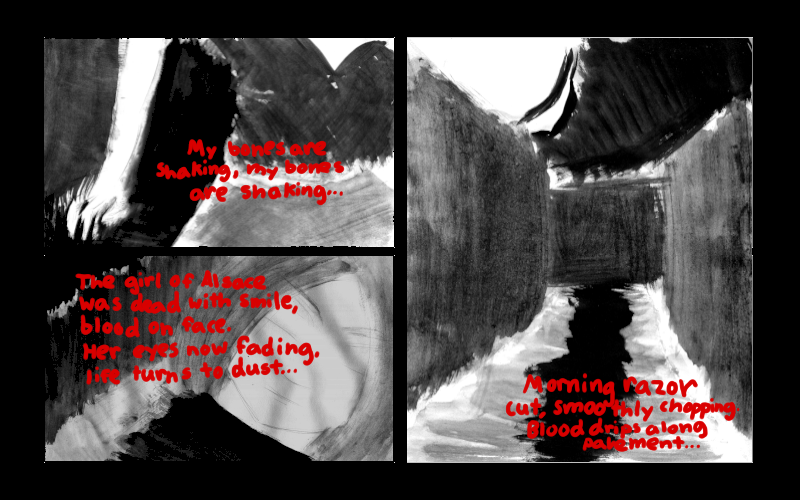 My bones are
shaking, my bones
are shaking...
The girl of Alsace
was dead with smile,
blood on face.
Her eyes now fading,
life turns to dust...
Morning razor
cut, smoothly chopping.
Blood drips along
pavement...